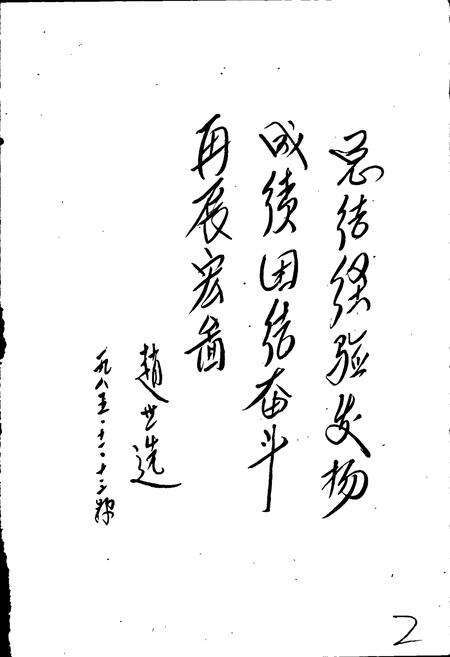 总结经验发扬
成绩团结奋斗
再展宏啚
赵世选
一九八五·十一·十三
2